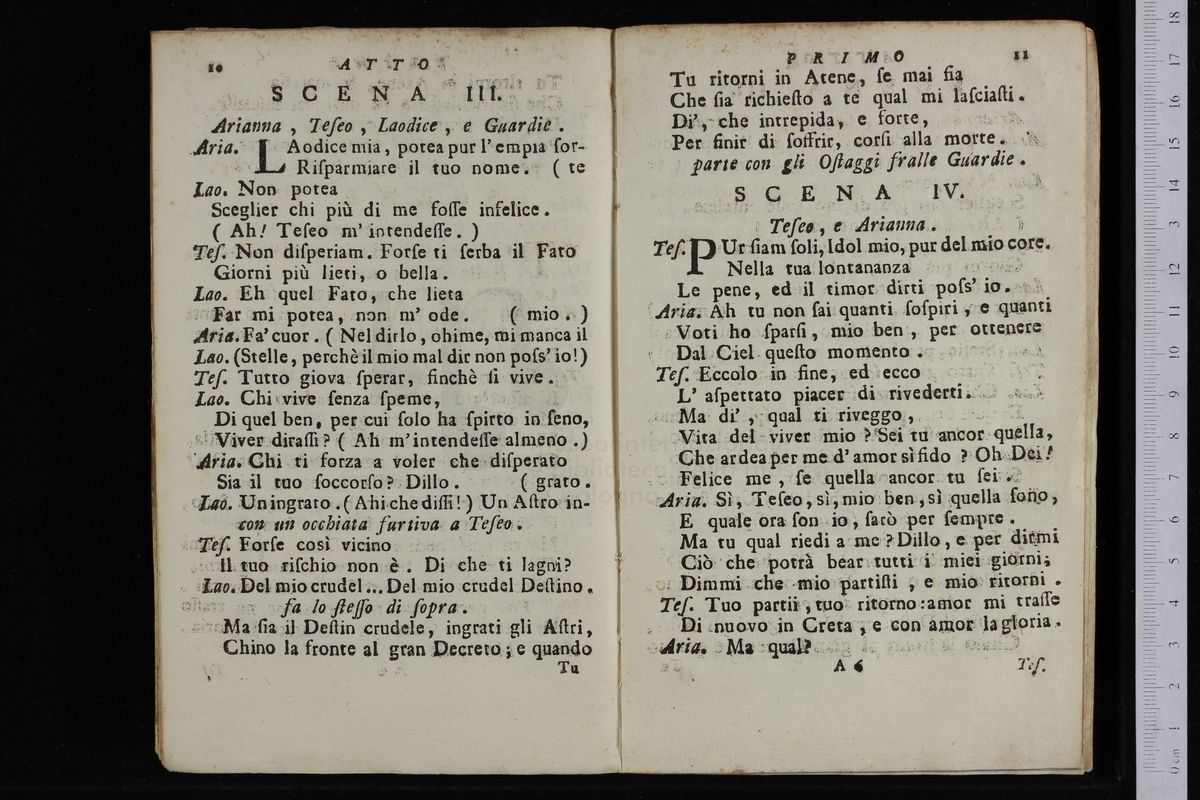 10 ATTO
SCENA III.
Arianna, Teſeo, Laodice, e Guardie.
Aria. LAodice mia, potea pur l'empia ſor-
Riſparmiare il tuo nome. ( te
Lao. Non potea
Sceglier chi più di me foſſe infelice.
( Ah! Teſeo m'intendeſſe. )
Teſ. Non diſperiam. Forſe ti ſerba il Fato
Giorni più lieti, o bella.
Lao. Eh quel Fato, che lieta
Far mi potea, non m'ode. ( mio. )
Aria. Fa' cuor. ( Nel dirlo, ohime, mi manca il
Lao. (Stelle, perchè il mio mal dir non poſs'io!)
Teſ. Tutto giova ſperar, finchè ſi vive.
Lao. Chi vive ſenza ſpeme,
Di quel ben, per cui ſolo ha ſpirto in ſeno,
Viver diraſſi? ( Ah m'intendeſſe almeno. )
Aria. Chi ti forza a voler che diſperato
Sia il tuo ſoccorſo? Dillo. ( grato.
Lao. Un ingrato. ( Ahi che diſſi! ) Un Aſtro in-
con un occhiata furtiva a Teſeo.
Teſ. Forſe così vicino
Il tuo riſchio non è. Di che ti lagni?
Lao. Del mio crudel... Del mio crudel Deſtino.
fa lo ſteſſo di ſopra.
Ma ſia il Deſtin crudele, ingrati gli Aſtri,
Chino la fronte al gran Decreto; e quando
Tu
PRIMO 11
Tu ritorni in Atene, ſe mai ſia
Che ſia richieſto a te qual mi laſciaſti.
Di', che intrepida, e forte,
Per finir di ſoffrir, corſi alla morte.
parte con gli Oſtaggi fralle Guardie.
SCENA IV.
Teſeo, e Arianna.
Teſ. PUr ſiam ſoli, Idol mio, pur del mio core.
Nella tua lontananza
Le pene, ed il timor dirti poſs'io.
Aria. Ah tu non ſai quanti ſoſpiri, e quanti
Voti ho ſparſi, mio ben, per ottenere
Dal Ciel queſto momento.
Teſ. Eccolo in fine, ed ecco
L'aſpettato piacer di rivederti.
Ma di', qual ti riveggo,
Vita del viver mio? Sei tu ancor quella,
Che ardea per me d'amor sì fido? Oh Dei!
Felice me, ſe quella ancor tu ſei.
Aria. Sì, Teſeo, sì, mio ben, sì quella ſono,
E quale ora ſon io, ſarò per ſempre.
Ma tu qual riedi a me? Dillo, e per dirmi
Ciò che potrà bear tutti i miei giorni;
Dimmi che mio partiſti, e mio ritorni.
Teſ. Tuo partii, tuo ritorno: amor mi traſſe
Di nuovo in Creta, e con amor la gloria.
Aria. Ma qual?
A 6 Teſ.